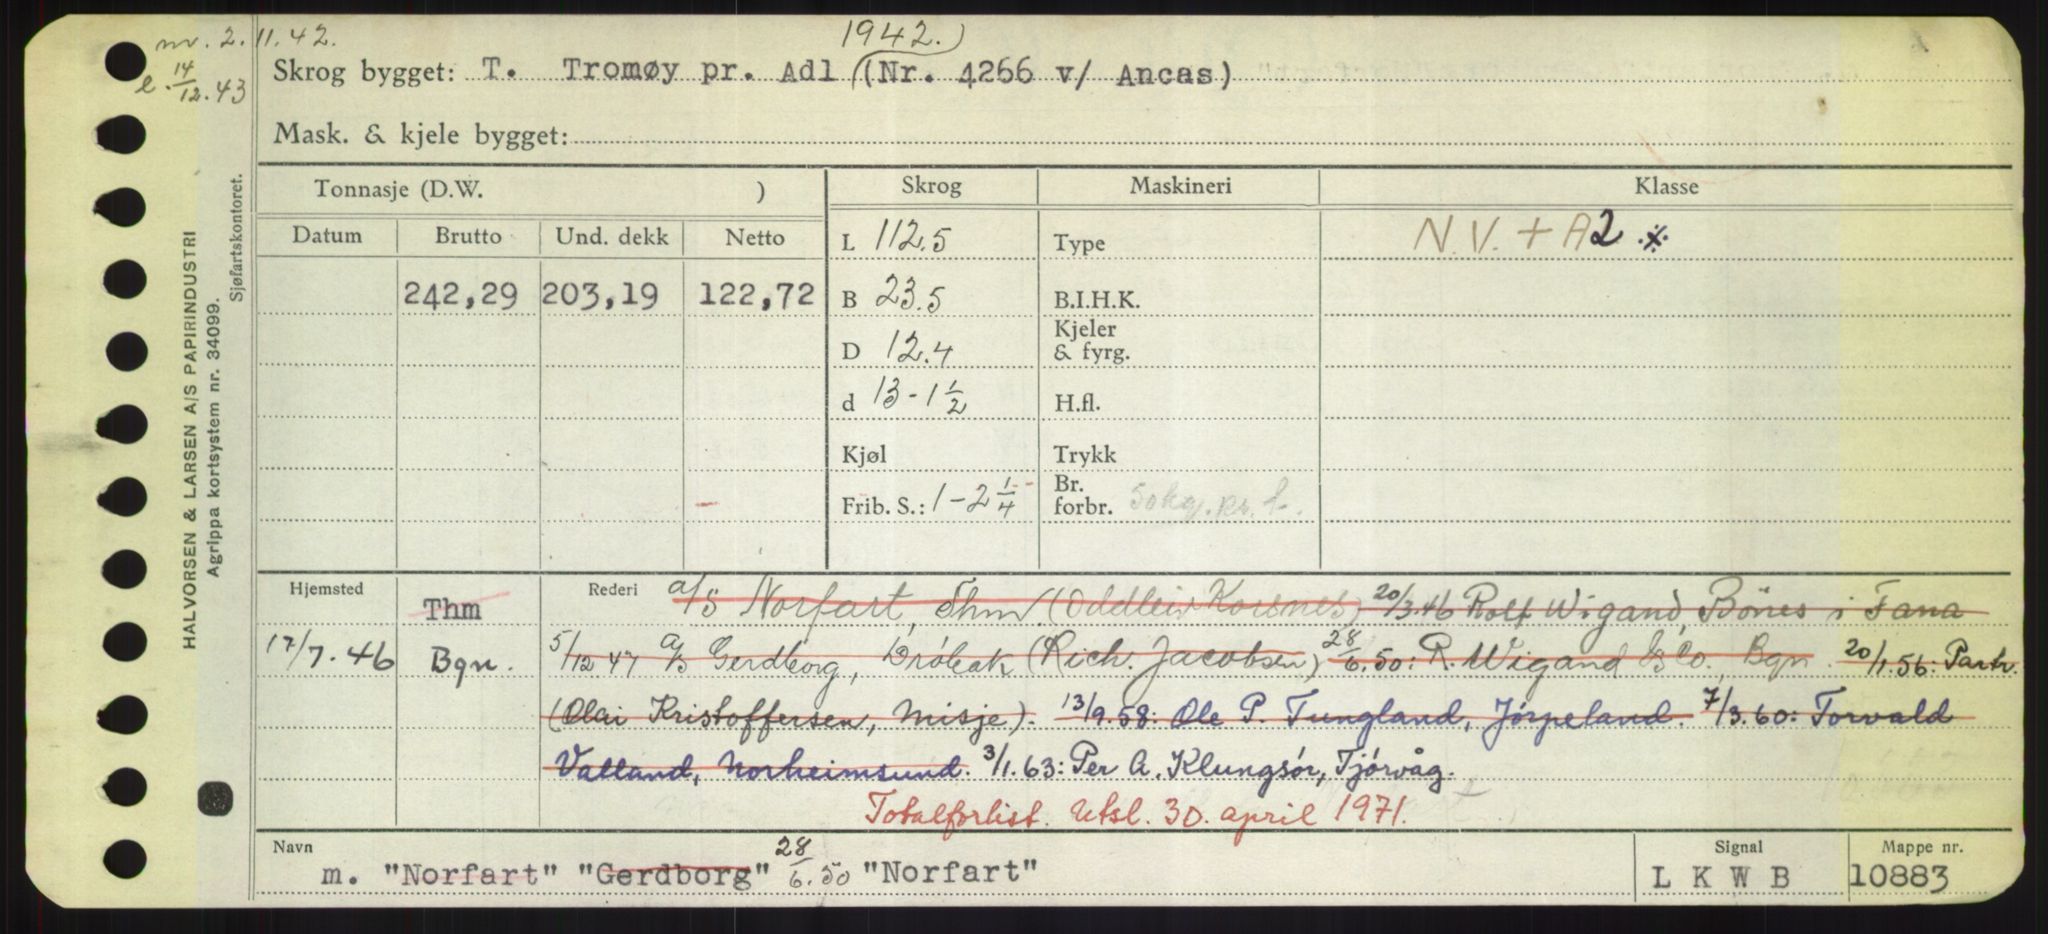 nv. 2.11.42. 1942.)
e. 14/12.43
Skrog bygget: T. Tromøy pr. Adl (Nr. 4266 v/ Ancas)
Mask. & kjele bygget:
Tonnasje (D.W. )
Skrog Maskineri Klasse
Datum Brutto Und. dekk Netto
L 112.5 Type N.V. + A2
242,29 203,19 122,72
B 23.5 B.I.H.K.
D 12.4 Kjeler & fyrg.
d 13-1 1/2 H.fl.
Kjøl Trykk
Frib. S.: 1-2 1/4 Br. forbr. 50 kg. pr. t.
Hjemsted Thm Rederi a/s Norfart, Thm (Oddleiv Korsnes) 20/3.46 Rolf Wigand, Bönes i Fana
17/7.46 Bgn. 5/12 47 a/s Gerdborg, Dröbak (Rich. Jacobsen) 28/6.50: R. Wigand & Co. Bgn. 20/1.56: Partr.
(Olai Kristoffersen, Misje). 13/9.58: Ole P. Tungland, Jørpeland. 7/3.60: Torvald
Valland, Norheimsund. 3/1.63: Per A. Klungsór, Tjórvåg.
Totalforlist. Utsl. 30. april 1971.
Navn m. "Norfart" "Gerdborg" 28/6.50 "Norfart"
Signal L K W B
Mappe nr. 10883
HALVORSEN & LARSEN A/S PAPIRINDUSTRI
Agrippa kortsystem nr. 34099.
Sjøfartskontoret.